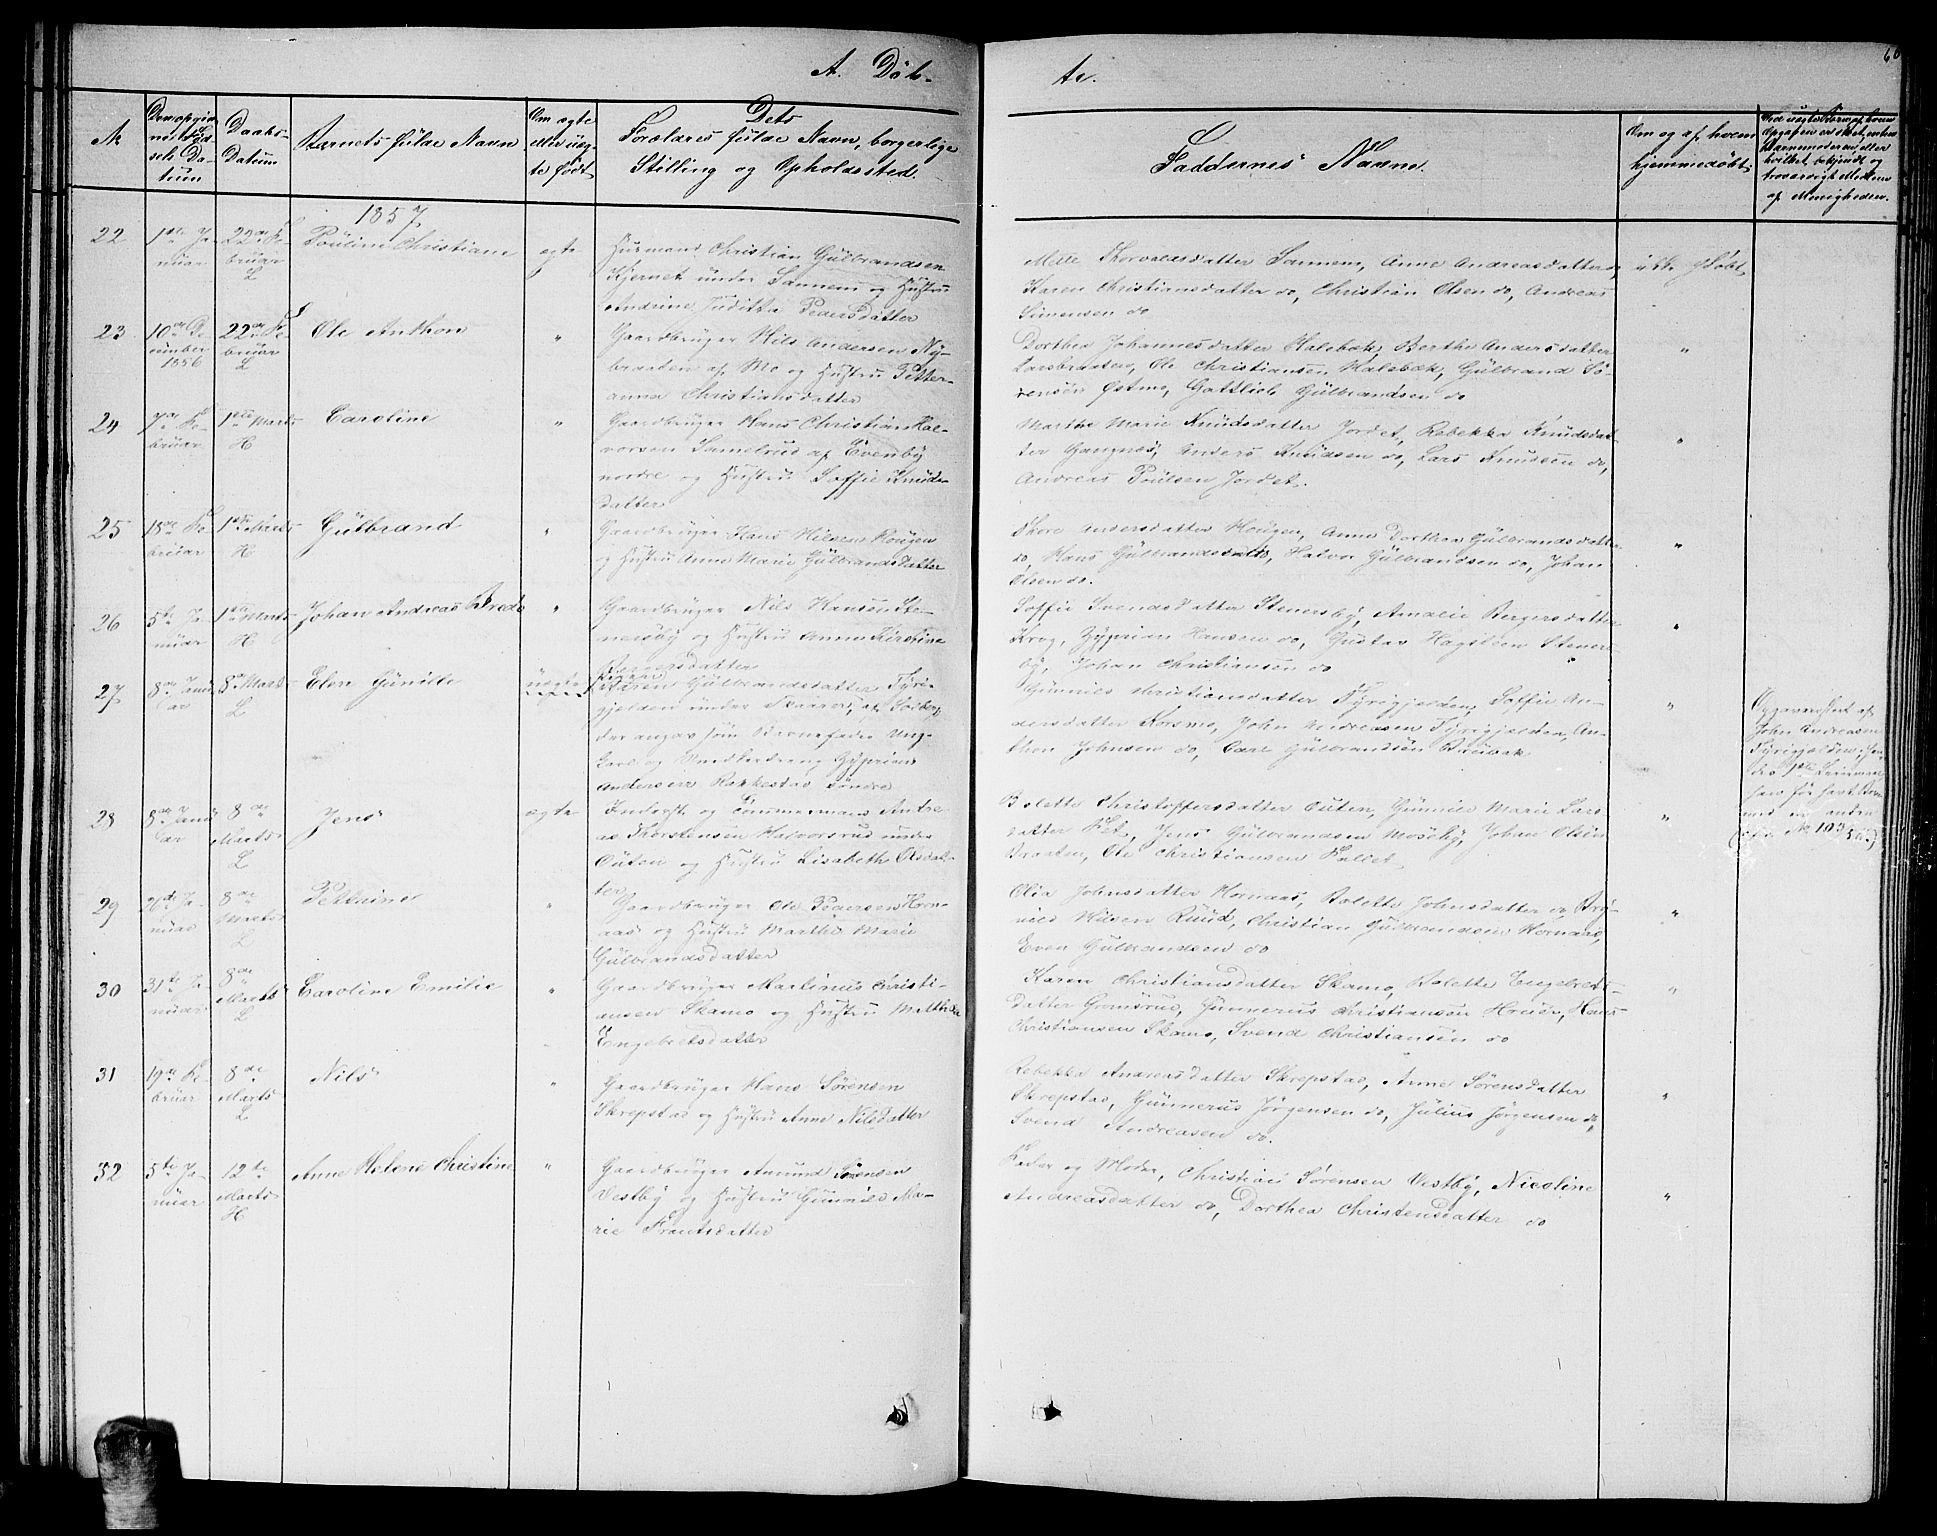 A. Døb-
te.
60
№
Den opgiv-
ne Fød-
sels Da-
tum
Daabs-
Datum
Barnets fulde Navn
Om ægte
eller uæg-
te født
Dets
Forældres fulde Navn, borgerlige
Stilling og Opholdssted.
Faddernes Navne.
Om og af hvem
hjemmedøbt
1857
22
1ste Ja-
nuar
22de Fe-
bruar
L
Pouline Christiane
ægte
Husmand Christian Gulbrandsen
Kjernet under Sannem og Hustru
Andrine Juditta Pedersdatter
Mille Thorvaldsdatter Sannem, Anne Andreasdatter do,
Karen Christiansdatter do, Christian Olsen do, Andreas
Simensen do
ikke hjdøbt
23
10de De-
cember
1856
22de Fe-
bruar
L
Ole Anthon
"
Gaardbruger Nils Andersen Ny-
braaten af Mo og Hustru Petter-
anna Christiansdatter
Dorthea Johannesdatter Halebæk, Berthe Andersdatter
Larsbraaten, Ole Christiansen Halebæk, Gulbrand Sö-
rensen Østmo, Gottlieb Gulbrandsen do
"
24
7de Fe-
bruar
1ste Marts
H
Caroline
"
Gaardbruger Hans Christian Hal-
vorsen Samelrud af Evenby
nordre og Hustru Soffie Knuds-
datter
Marthe Marie Knudsdatter Jordet, Rebekka Knudsdat-
ter Gangnæs, Anders Knudsen do, Lars Knudsen do,
Andreas Poulsen Jordet.
"
25
18de Fe-
bruar
1ste Marts
H
Gulbrand
"
Gaardbruger Hans Nilsen Hougen
og Hustru Anne Marie Gulbrandsdatter
Thore Andersdatter Hougen, Anne Dorthea Gulbrandsdatter
do, Hans Gulbrandsen do, Halvor Gulbrandsen do, Johan
Olsen do.
"
26
5te Ja-
nuar
1ste Marts
H
Johan Andreas Bredo
"
Gaardbruger Nils Hansen Ste-
nersby og Hustru Anne Kirstine
Bergersdatter
Soffie Svendsdatter Stenersby, Amalie Bergersdatter
Krog, Zyprian Hansen do, Gustav Hagsteen Steners-
by, Johan Christiansen do
"
27
8de Janu-
ar
8de Marts
L
Elen Gunille
uægte
Pigen
Karen Gulbrandsdatter Tyri-
gjelden under Skaarer, af Solberg,
der angav som Barnefader Ung-
karl og Landkerdreng Zyprian
Andersen Rakkestad Søndre
Gunnild Christiansdatter Tyrigjelden, Soffie An-
dersdatter Korsmo, John Andreasen Tyrigjelden, An-
thon Johnsen do, Carl Gulbrandsen Brubak
"
Opgaven skeet af
John Andreasen
Tyrigjelden, hen-
des 1ste Leiermaal
med en anden
28
8de Janu-
ar
8de
Marts
L
Jens
ægte
Inderst og Tømmermand Andre-
as Thorstensen Halvorsrud under
Outen og Hustru Lisabeth Olsdat-
ter
Bolette Christoffersdatter Outen, Gunnild Marie Lars-
datter Vet, Jens Gulbrandsen Moseby, Johan Olsen
Braaten, Ole Christiansen Vallet
"
29
26de Ja-
nuar
8de
Marts
L
Pettrine
"
Gaardbruger Ole Pedersen Horn-
aas og Hustru Marthe Marie
Gulbrandsdatter
Olia Johnsdatter Hornaas, Bolette Johnsdatter do, Bry-
nild Nilsen Ruud, Christian Gulbrandsen Hornaas,
Even Gulbrandsen do
"
30
31te Ja-
nuar
8de
Marts
L
Caroline Emilie
"
Gaardbruger Martinus Christi-
ansen Skamo og Hustru Mathea
Engebretsdatter
Karen Christiansdatter Skamo, Bolette Engebrets-
datter Grønsrud, Gunnerus Christiansen Hvide, Hans
Christiansen Skamo, Svend Christiansen do
"
31
19de Fe-
bruar
8de
Marts
L
Nils
"
Gaardbruger Hans Sørensen
Skrepstad og Hustru Anne Nilsdatter
Rebekka Andreasdatter Skrepstad, Anne Sørensdatter
Skrepstad, Gunnerus Jørgensen do, Julius Jørgensen do,
Svend Andreasen do.
"
32
5te Ja-
nuar
12te
Marts
H
Anne Helene Christine
"
Gaardbruger Amund Sørensen
Vestby og Hustru Gunnild Ma-
rie Frantsdatter
Fader og Moder, Christian Sørensen Vestby, Nicoline
Andreasdatter do, Dorthea Christensdatter do
"